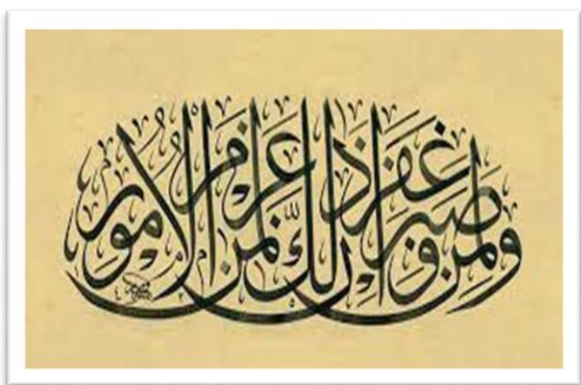 ولمن صبر وغفر إن ذلك لمن عزم الأمور